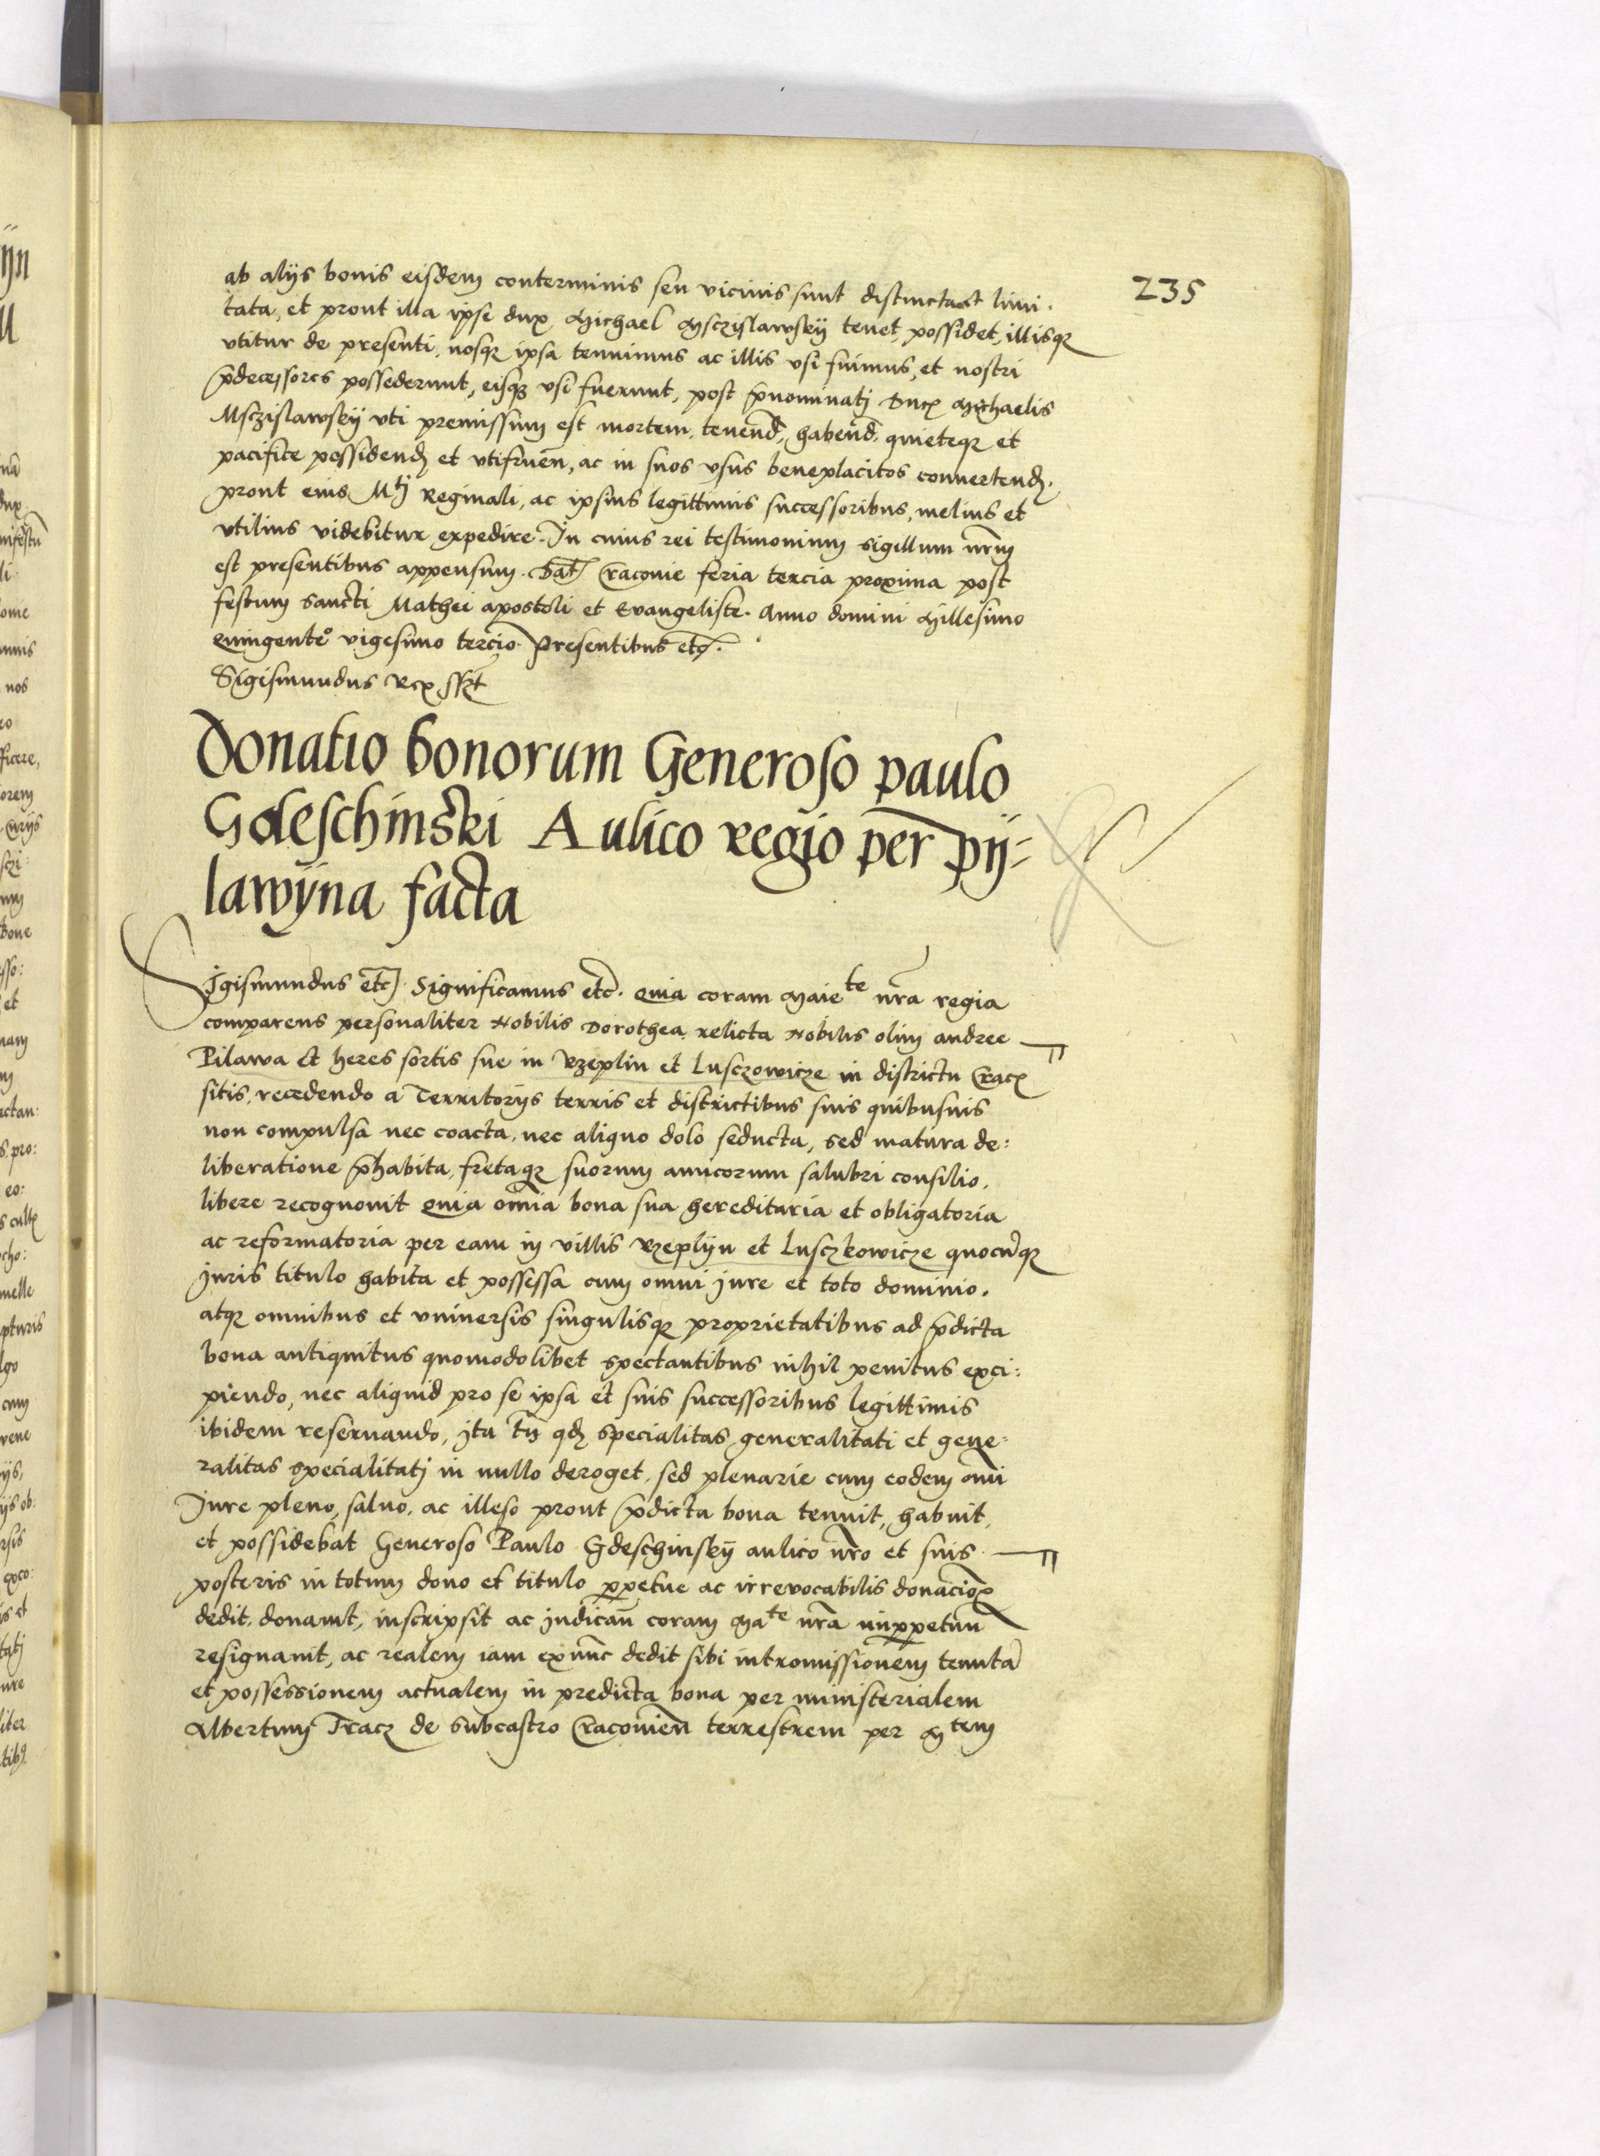 235
ab alijs bonis eisdem conterminis seu vicinis sunt distincta et limi.
tata, et prout illa ipse dux Michael Msczislawskij tenet, possidet, illisq
vtitur de presenti, nosq ipsa tenuimus ac illis vsi fuimus, et nostri
p̄decessores possederunt, eisq vsi fuerunt, post p̄nominatj Ducꝭ Michaelis
Msczislawskij vti premissum est mortem, tenend̄, habend̄, quieteq et
pacifice possidend̄ et vtifruen̄, ac in suos vsus beneplacitos conuertend̄.
prout eius Mtj Reginali, ac ipsius legittimis successoribus, melius et
vtilius videbitur expedire. In cuius rei testimonium sigillum nrm̄
est presentibus appensum. Dat̄ Cracouie feria tercia proxima post
festum Sancti Mathei apostoli et Evangeliste. Anno domini Millesimo
Quingenteo vigesimo tercio. Presentibus etc.
Sigismundus Rex sszt
Donatio bonorum Generoso paulo
Gdeschinski Aulico regio per pij=
lawyna facta
Sigismundus etc. Significamus etc. Quia coram Maiete nrā regia
comparens personaliter Nobilis Dorothea relicta Nobilis olim andree
Pilawa et heres sortis sue in Rzeplin et Lusczowicze in districtu Cracꝭ
sitis, recedendo a Territorijs terris et districtibus suis quibusuis
non compulsa nec coacta, nec aliquo dolo seducta, sed matura de:
liberatione p̄habita, fretaq suorum amicorum salubri consilio.
libere recognouit Quia omn̄ia bona sua hereditaria et obligatoria
ac reformatoria per eam in villis Rzeplijn et Lusczkowicze quocūq
juris titulo habita et possessa cum omni jure et toto dominio.
atq omnibus et vniuersis singulisq proprietatibus ad p̄dicta
bona antiquitus quomodolibet spectantibus nihil penitus exci:
piendo, nec aliquid pro se ipsa et suis successoribus legittimis
ibidem reseruando, jta tn̄ qd̄ specialitas generalitati et gene:
ralitas specialitatj in nullo deroget, sed plenarie cum eodem omī
Jure pleno, saluo, ac illeso prout p̄dicta bona tenuit, habuit,
et possidebat Generoso Paulo Gdeschinskij aulico nrō et suis
posteris in totum dono et titulo ꝑpetue ac irreuocabilis donacioꝭ
dedit, donauit, inscripsit ac judicau̅ coram Mate nrā inꝑpetuum
resignauit, ac realem iam exnunc dedit sibi intromissionem tenutā
et possessionem actualem in predicta bona per ministerialem
Albertum Tracz de subcastro Cracouien̄ terrestrem per Mtem